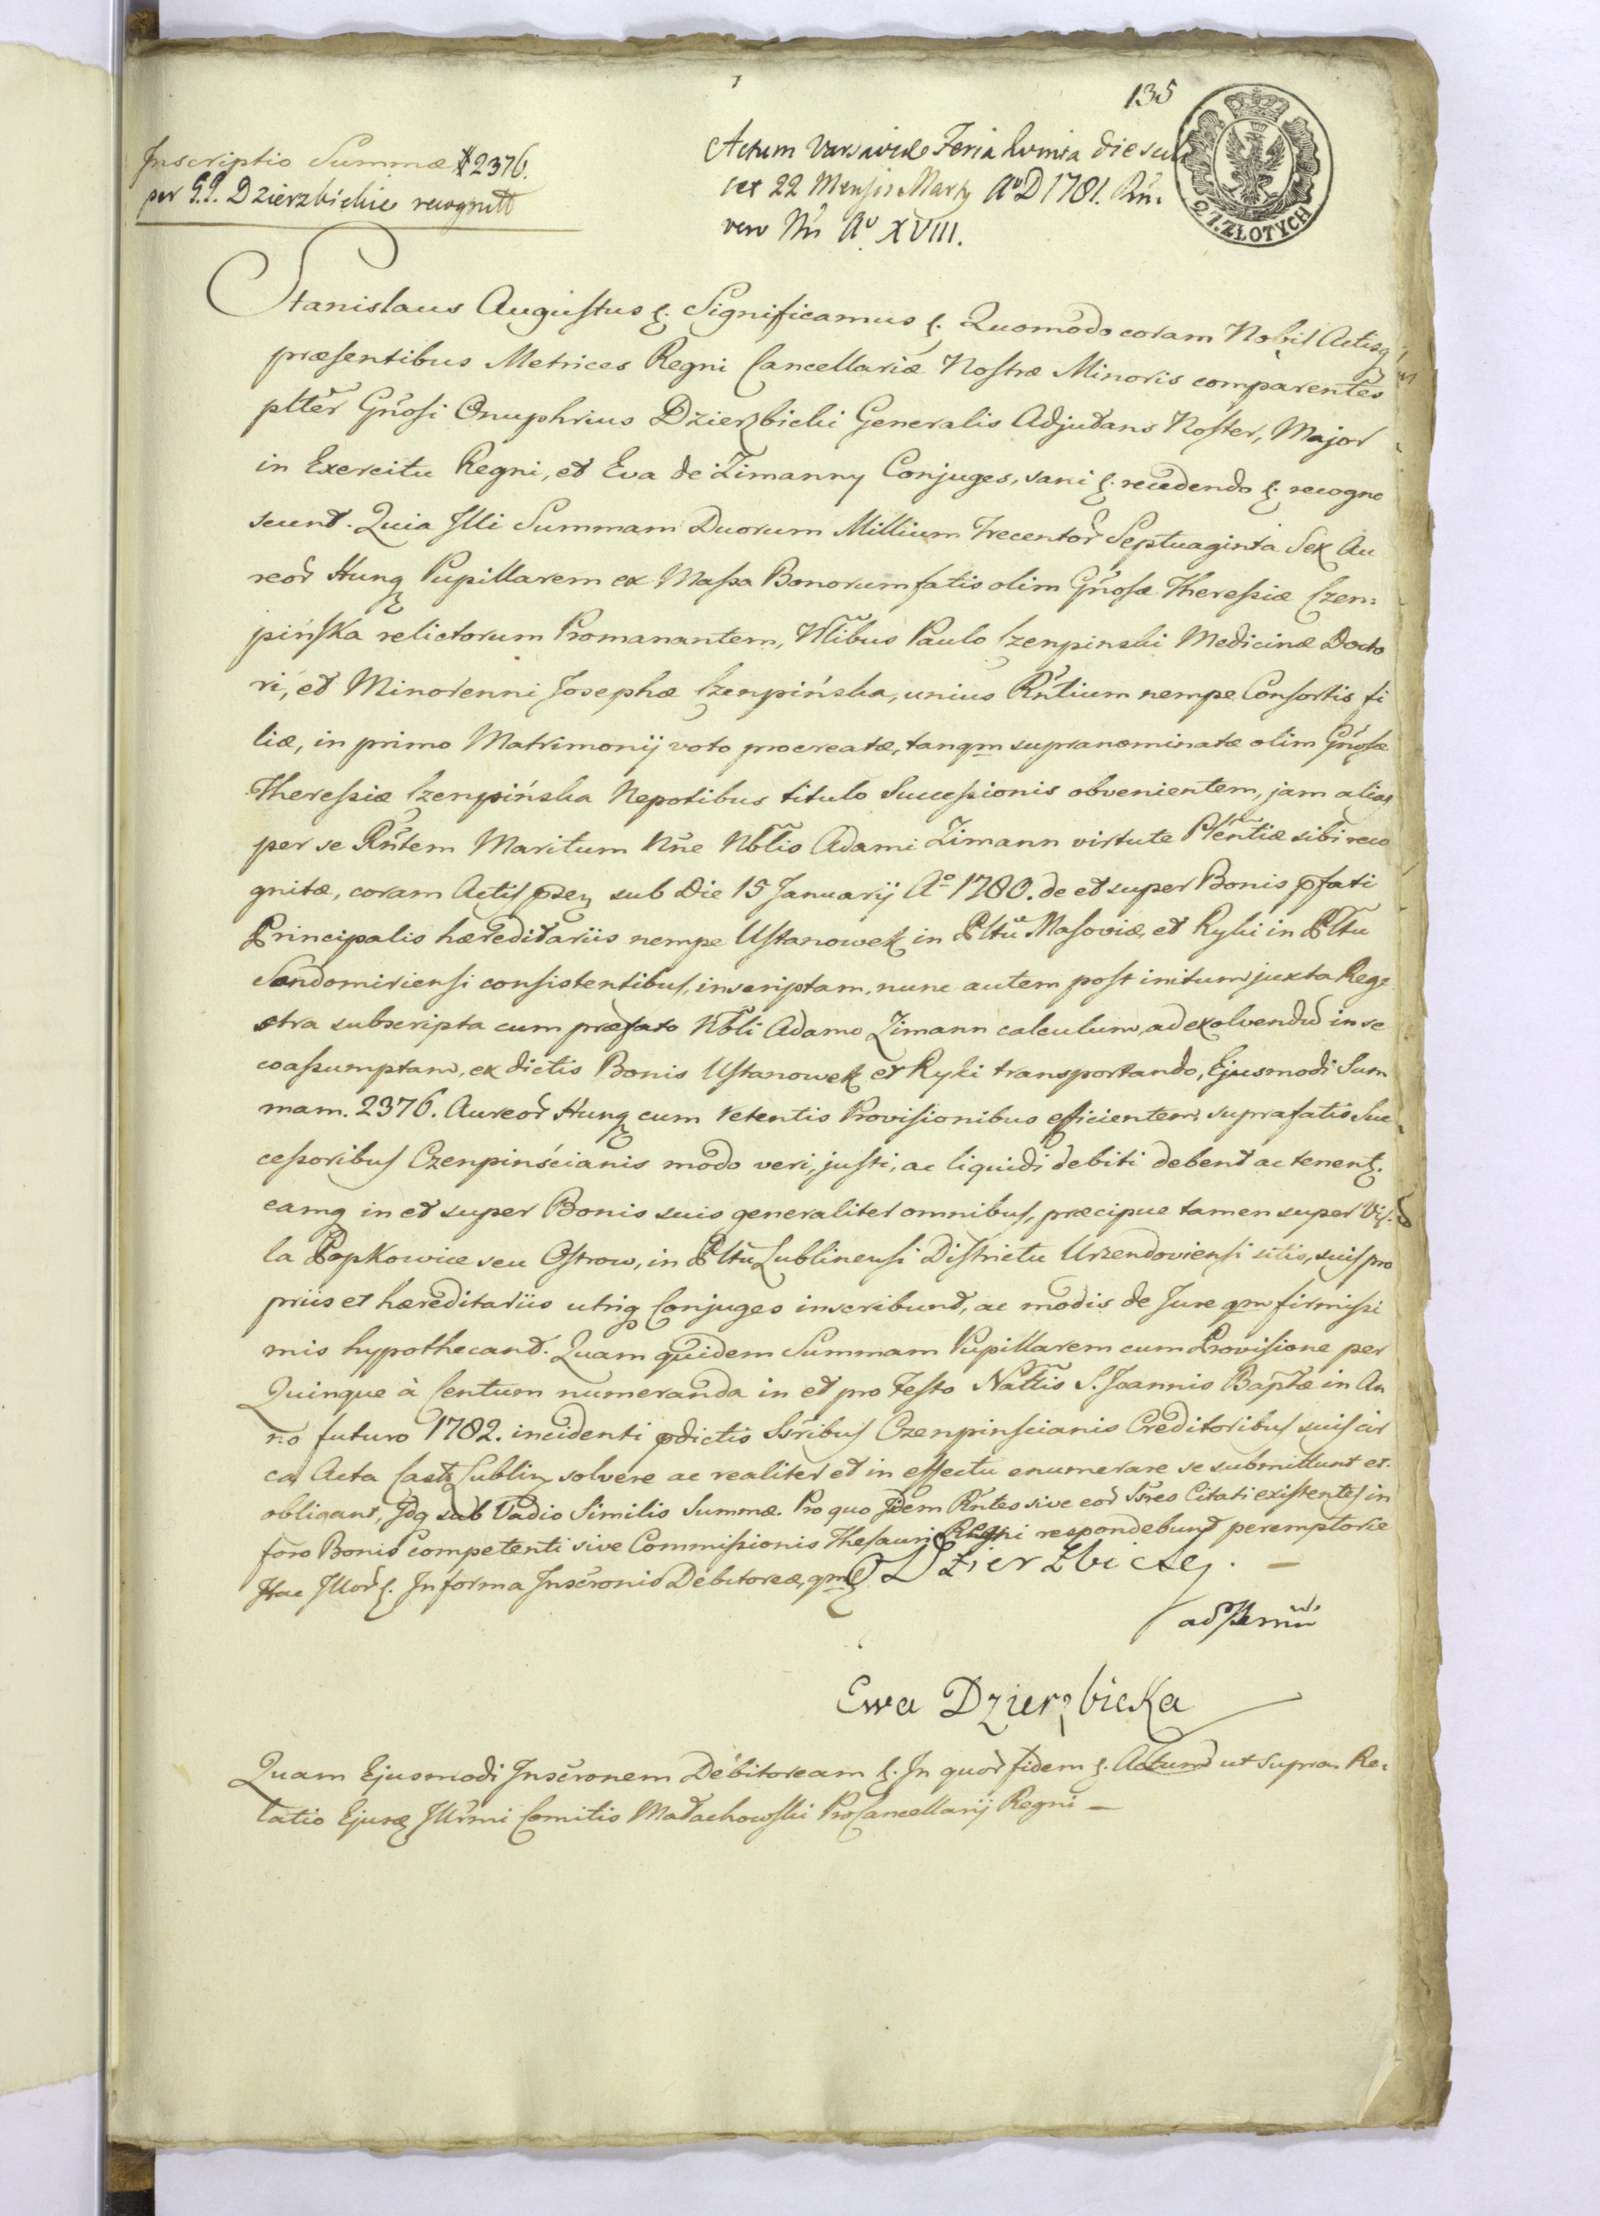 135
2 ZŁOTYCH
Inscriptio Summæ # 2376.
per G.G. Dzierzbickie recognitt
Actum Varsaviæ Feria Quinta die scili
cet 22 Mensis Marty Aº D 1781.
vero Aº XVIII.
Stanislaus Augustus &. Significamus &. Quomodo coram Nobis Actisq
præsentibus Metrices Regni Cancellariæ Nostræ Minoris comparentes
plttēr Gn̄osi Onuphrius Dzierzbicki Generalis Adjutans Noster, Major
in Exercitu Regni, et Eva de Zimanny Conjuges, sani &. recedendo &. recogno
scunt. Quia Illi Summam Duorum Millium Trecentor Septuaginta Sex Au
reor Hung Pupillarem ex Massa Bonorum fatis olim Gn̄osæ Theressiæ Czen:
pińska relictorum Promanantem, Nllibus Paulo Czenpinski Medicinæ Docto
ri, et Minorenni Josephæ Czenpińska, unius Rn̄tium nempe Consortis fi
liæ, in primo Matrimonij voto procreatæ, tanqm supranominatæ olim Gn̄osæ
Theressiæ Czenpińska Nepotibus titulo Successionis obvenientem, jam alias
per se Rn̄tem Maritum Nn̄e Nbllis Adami Zimann virtute Plen̄tiæ sibi reco
gnitæ, coram Actis psen sub Die 15 Januarij Aº 1780. de et super Bonis pfati
Principalis hæreditariis nempe Ustanowek in Pltu Masoviæ, et Ryki in Pltu
Sandomiriensi consistentibus, inscriptam, nunc autem post initum juxta Rege
stra subscripta cum præfato Nbli Adamo Zimann calculum, ad exolvendū in se
coassumptam, ex dictis Bonis Ustanowek et Ryki transportando, Ejusmodi Sum
mam. 2376. Aureor Hung cum retentis Provisionibus efficientem, suprafatis Suc
cessoribus Czenpinścianis modo veri, justi, ac liquidi debiti debent ac tenent.
eamq in et super Bonis suis generaliter omnibus, præcipue tamen super Vil
la Popkowice seu Ostrow, in Pltu Lublinensi Districtu Urzendoviensi sitis, suis pro
priis et hæreditariis utriq Conjuges inscribunt, ac modis de Jure qm firmissi
mis hypothecant. Quam quidem Summam Pupillarem cum Provisione per
Quinque à Centum numeranda in et pro Festo Nattis S. Joannis Baptæ in An
no futuro 1782. incidenti pdictis Ssribus Czenpinscianis Creditoribus suis cir
ca Acta Cast Lublin solvere ac realiter et in effectu enumerare se submittunt et
obligant, Idq sub Vadio Similis Summæ. Pro quo Idem Rn̄tes sive eor Ssres Citati existentes in
foro Bonis competenti sive Commissionis Thesauri Regni respondebunt peremptorie
Hac Illor &. In forma Inscr̄onis Debitoreæ, qm
O Dzierzbicky. —
Ewa Dzierzbicka
Quam Ejusmodi Inscr̄onem Debitoream &. In quor fidem &. Actum ut supra. Re:
latio Ejusd Illr̄mi Comitis Małachowski ProCancellarij Regni —